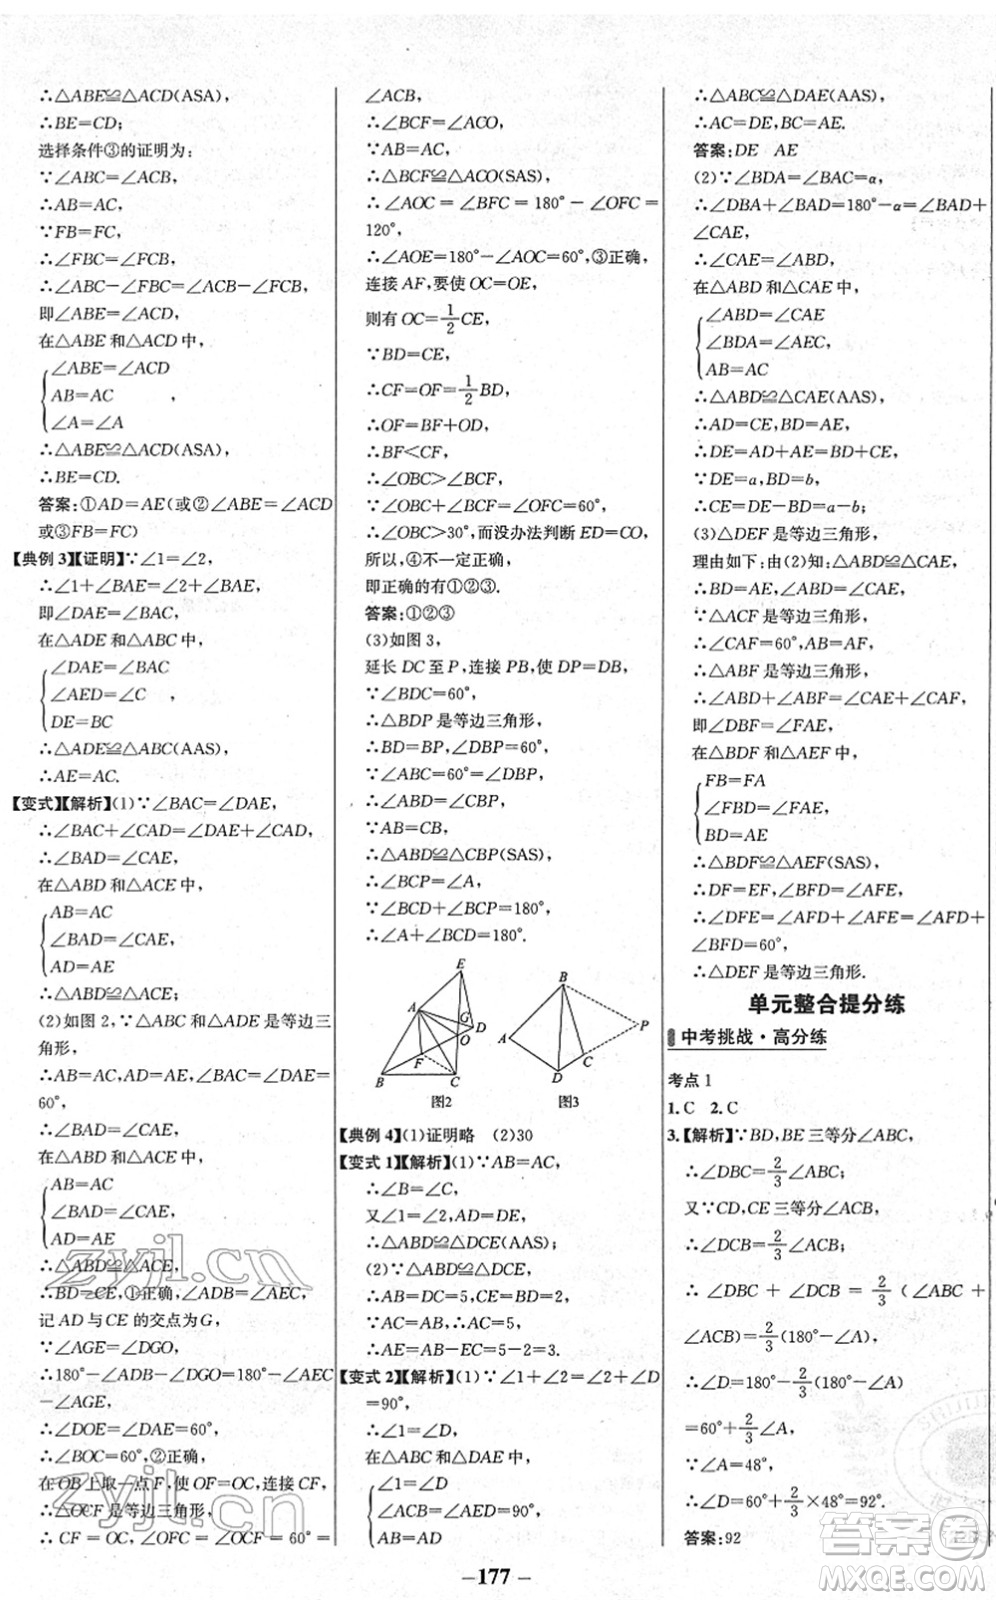 ∴△ABE≌△ACD(ASA),
∴BE=CD;
选择条件③的证明为:
∵∠ABC=∠ACB,
∴AB=AC,
∵FB=FC,
∴∠FBC=∠FCB,
∴∠ABC-∠FBC=∠ACB-∠FCB,
即∠ABE=∠ACD,
在△ABE和△ACD中,
∠ABE=∠ACD
AB=AC ,
∠A=∠A
∴△ABE≌△ACD(ASA),
∴BE=CD.
答案:①AD=AE(或②∠ABE=∠ACD
或③FB=FC)
【典例3】【证明】∵∠1=∠2,
∴∠1+∠BAE=∠2+∠BAE,
即∠DAE=∠BAC,
在△ADE和△ABC中,
∠DAE=∠BAC
∠AED=∠C ,
DE=BC
∴△ADE≌△ABC(AAS),
∴AE=AC.
【变式】【解析】(1)∵∠BAC=∠DAE,
∴∠BAC+∠CAD=∠DAE+∠CAD,
∴∠BAD=∠CAE,
在△ABD和△ACE中,
AB=AC
∠BAD=∠CAE,
AD=AE
∴△ABD≌△ACE;
(2)如图2,∵△ABC和△ADE是等边三
角形,
∴AB=AC,AD=AE,∠BAC=∠DAE=
60°,
∴∠BAD=∠CAE,
在△BAD和△CAE中,
AB=AC
∠BAD=∠CAE,
AD=AE
∴△BAD≌△CAE(SAS),
∴BD=CE,①正确,∠ADB=∠AEC,
记AD与CE的交点为G,
∵∠AGE=∠DGO,
∴180°-∠ADB-∠DGO=180°-∠AEC
-∠AGE,
∴∠DOE=∠DAE=60°,
∴∠BOC=60°,②正确,
在OB上取一点F,使OF=OC,连接CF,
∴△OCF是等边三角形,
∴CF=OC,∠OFC=∠OCF=60°=
∠ACB,
∴∠BCF=∠ACO,
∵AB=AC,
∴△BCF≌△ACO(SAS),
∴∠AOC=∠BFC=180°-∠OFC=
120°,
∴∠AOE=180°-∠AOC=60°,③正确,
连接AF,要使OC=OE,
则有OC=1/2CE,
∵BD=CE,
∴CF=OF=1/2BD,
∴OF=BF+OD,
∴BF<CF,
∴∠OBC>∠BCF,
∵∠OBC+∠BCF=∠OFC=60°,
∴∠OBC>30°,而没办法判断ED=CO,
所以,④不一定正确,
即正确的有①②③.
答案:①②③
(3)如图3,
延长DC至P,连接PB,使DP=DB,
∵∠BDC=60°,
∴△BDP是等边三角形,
∴BD=BP,∠DBP=60°,
∵∠ABC=60°=∠DBP,
∴∠ABD=∠CBP,
∵AB=CB,
∴△ABD≌△CBP(SAS),
∴∠BCP=∠A,
∵∠BCD+∠BCP=180°,
∴∠A+∠BCD=180°.
E
A
G
D
O
F
B
C
图2
B
P
A
C
D
图3
【典例4】(1)证明略 (2)30
【变式1】【解析】(1)∵AB=AC,
∴∠B=∠C,
又∠1=∠2,AD=DE,
∴△ABD≌△DCE(AAS);
(2)∵△ABD≌△DCE,
∴AB=DC=5,CE=BD=2,
∵AC=AB,∴AC=5,
∴AE=AB-EC=5-2=3.
【变式2】【解析】(1)∵∠1+∠2=∠2+∠D
=90°,
∴∠1=∠D,
在△ABC和△DAE中,
∠1=∠D
∠ACB=∠AED=90°,
AB=AD
∴△ABC≌△DAE(AAS),
∴AC=DE,BC=AE.
答案:DE AE
(2)∵∠BDA=∠BAC=α,
∴∠DBA+∠BAD=180°-α=∠BAD+
∠CAE,
∴∠CAE=∠ABD,
在△ABD和△CAE中,
∠ABD=∠CAE
∠BDA=∠AEC,
AB=AC
∴△ABD≌△CAE(AAS),
∴AD=CE,BD=AE,
∴DE=AD+AE=BD+CE,
∵DE=a,BD=b,
∴CE=DE-BD=a-b;
(3)△DEF是等边三角形,
理由如下:由(2)知:△ABD≌△CAE,
∴BD=AE,∠ABD=∠CAE,
∵△ACF是等边三角形,
∴∠CAF=60°,AB=AF,
∴△ABF是等边三角形,
∴∠ABD+∠ABF=∠CAE+∠CAF,
即∠DBF=∠FAE,
在△BDF和△AEF中,
FB=FA
∠FBD=∠FAE,
BD=AE
∴△BDF≌△AEF(SAS),
∴DF=EF,∠BFD=∠AFE,
∴∠DFE=∠AFD+∠AFE=∠AFD+
∠BFD=60°,
∴△DEF是等边三角形.
单元整合提分练
中考挑战·高分练
考点1
1.C 2.C
3.【解析】∵BD,BE三等分∠ABC,
∴∠DBC=2/3∠ABC;
又∵CD,CE三等分∠ACB,
∴∠DCB=2/3∠ACB;
∴∠DBC+∠DCB=2/3(∠ABC+
∠ACB)=2/3(180°-∠A)
∴∠D=180°-2/3(180°-∠A)
=60°+2/3∠A,
∵∠A=48°,
∴∠D=60°+2/3×48°=92°.
答案:92
-177-
zyjl.cn
zyjl.cn
答案圈
MXQE.COM